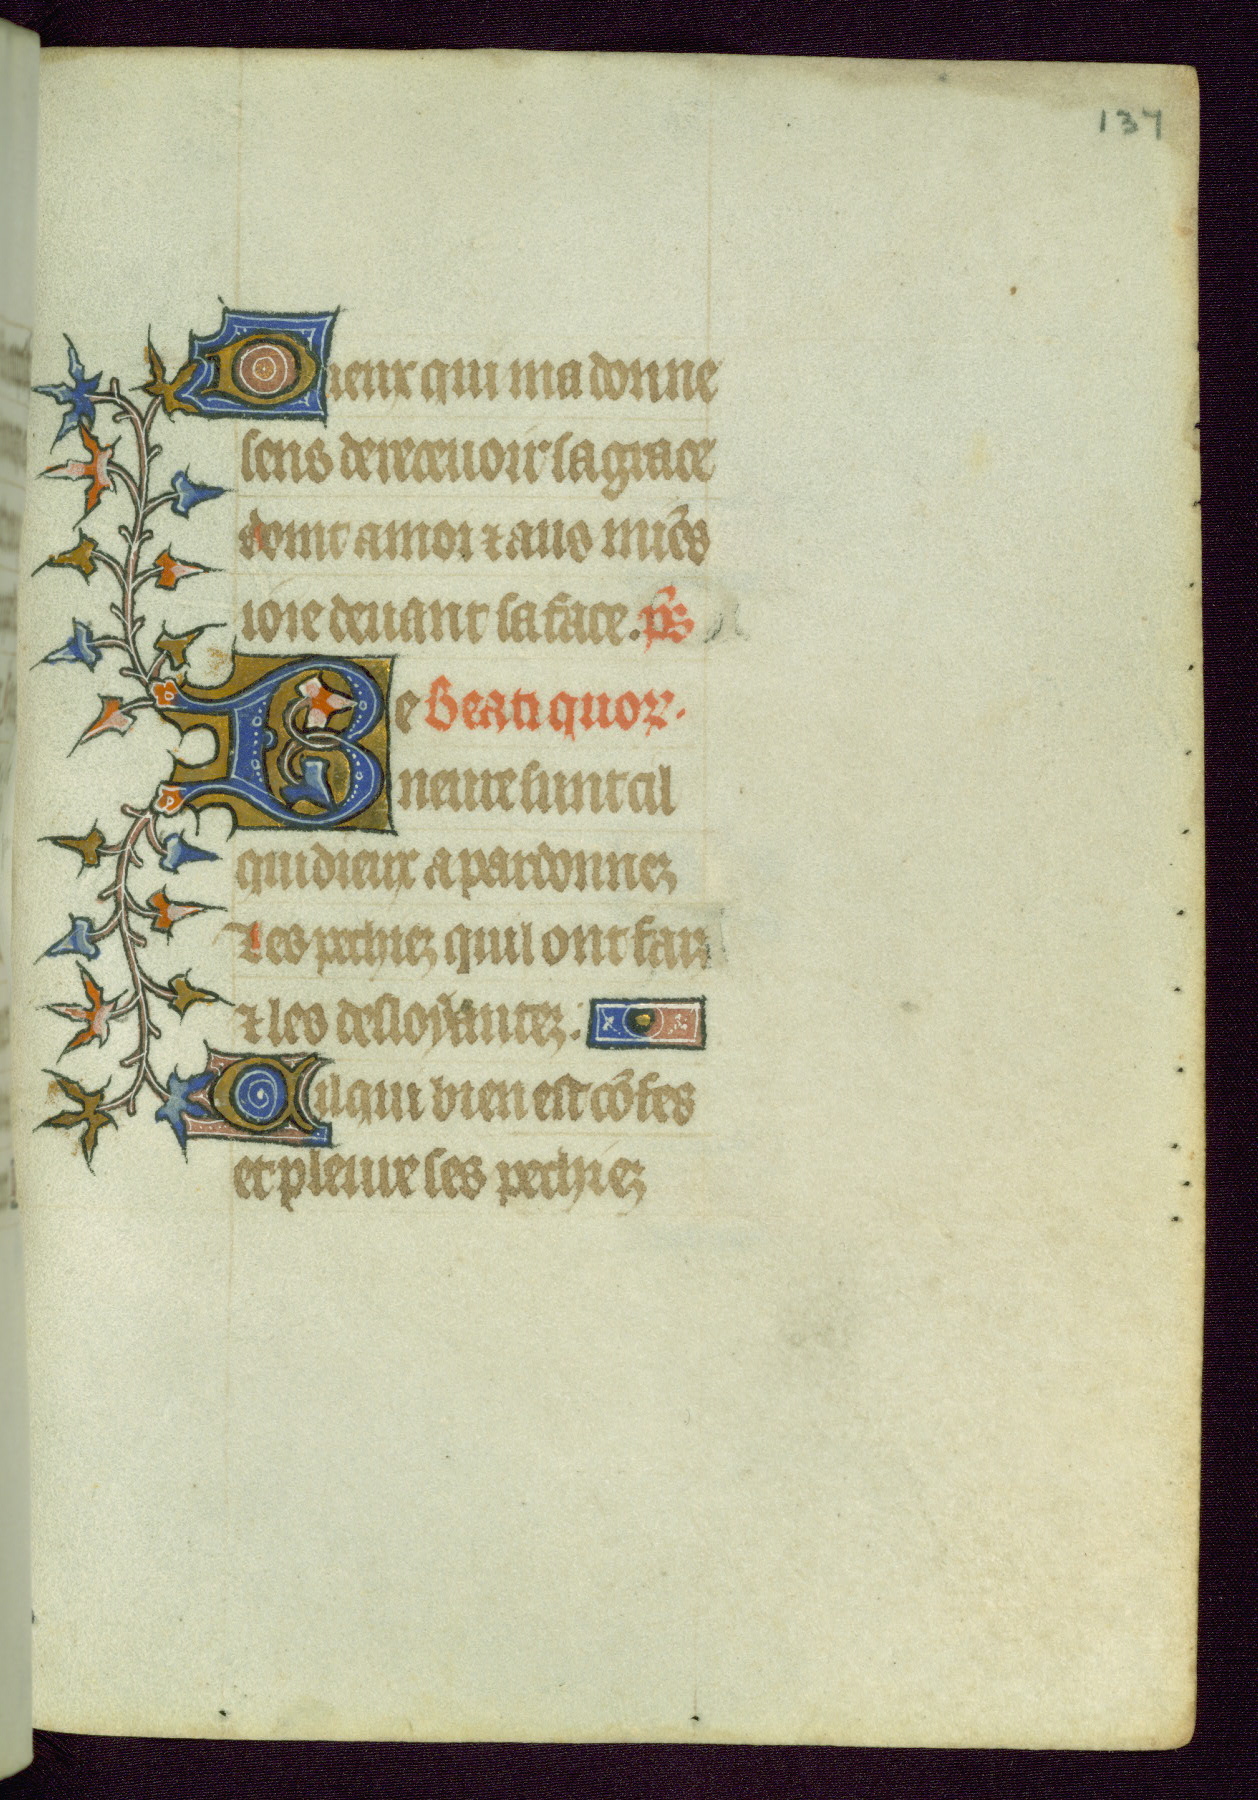 137
Dieux qui ma donne
sens de recevoir sa grace
doint a moi ⁊ a uos mīēs
ioie deuant sa face. ps̄
Be Beati quoꝝ.
neure sunt cil
qui dieux a pardonnez
Les pechiez quil ont fait
⁊ les desloyautez.
Cil qui bien est cōfes
et pleure ses pechiez